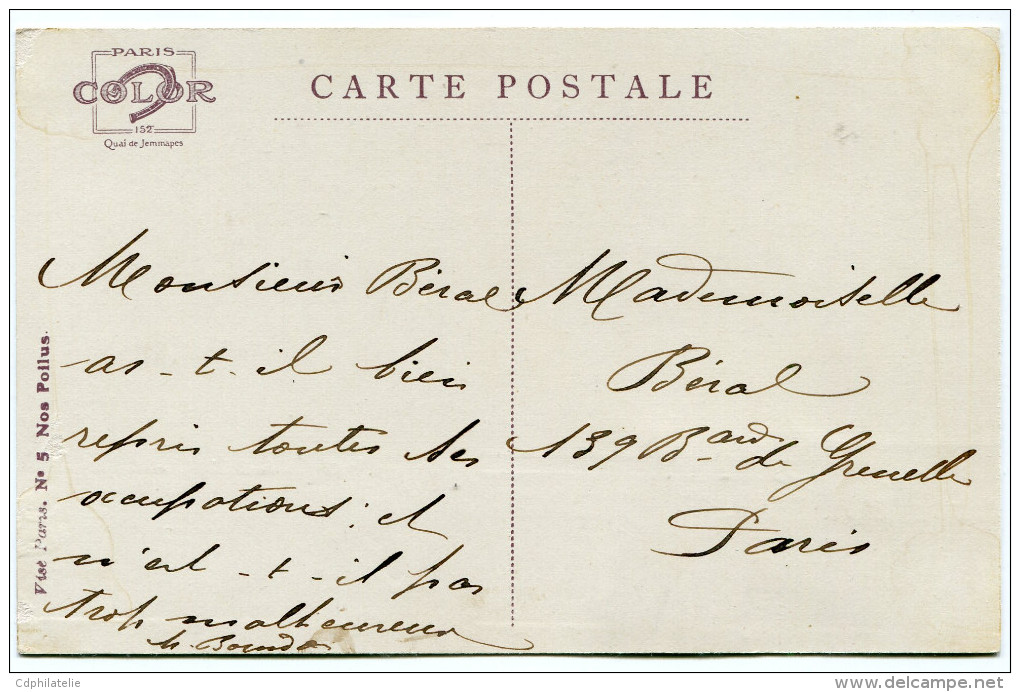 PARIS
COLOR
152
Quai de Jemmapes
CARTE POSTALE
Visé Paris. Nº 5. Nos Poilus.
Monsieur Béral
as-t-il bien
repris toutes ses
occupations; et
n'est-t-il pas
trop malheureux
Mademoiselle
Béral
139 Bard de Grenelle
Paris
Cdphilatelie
www.delcampe.net